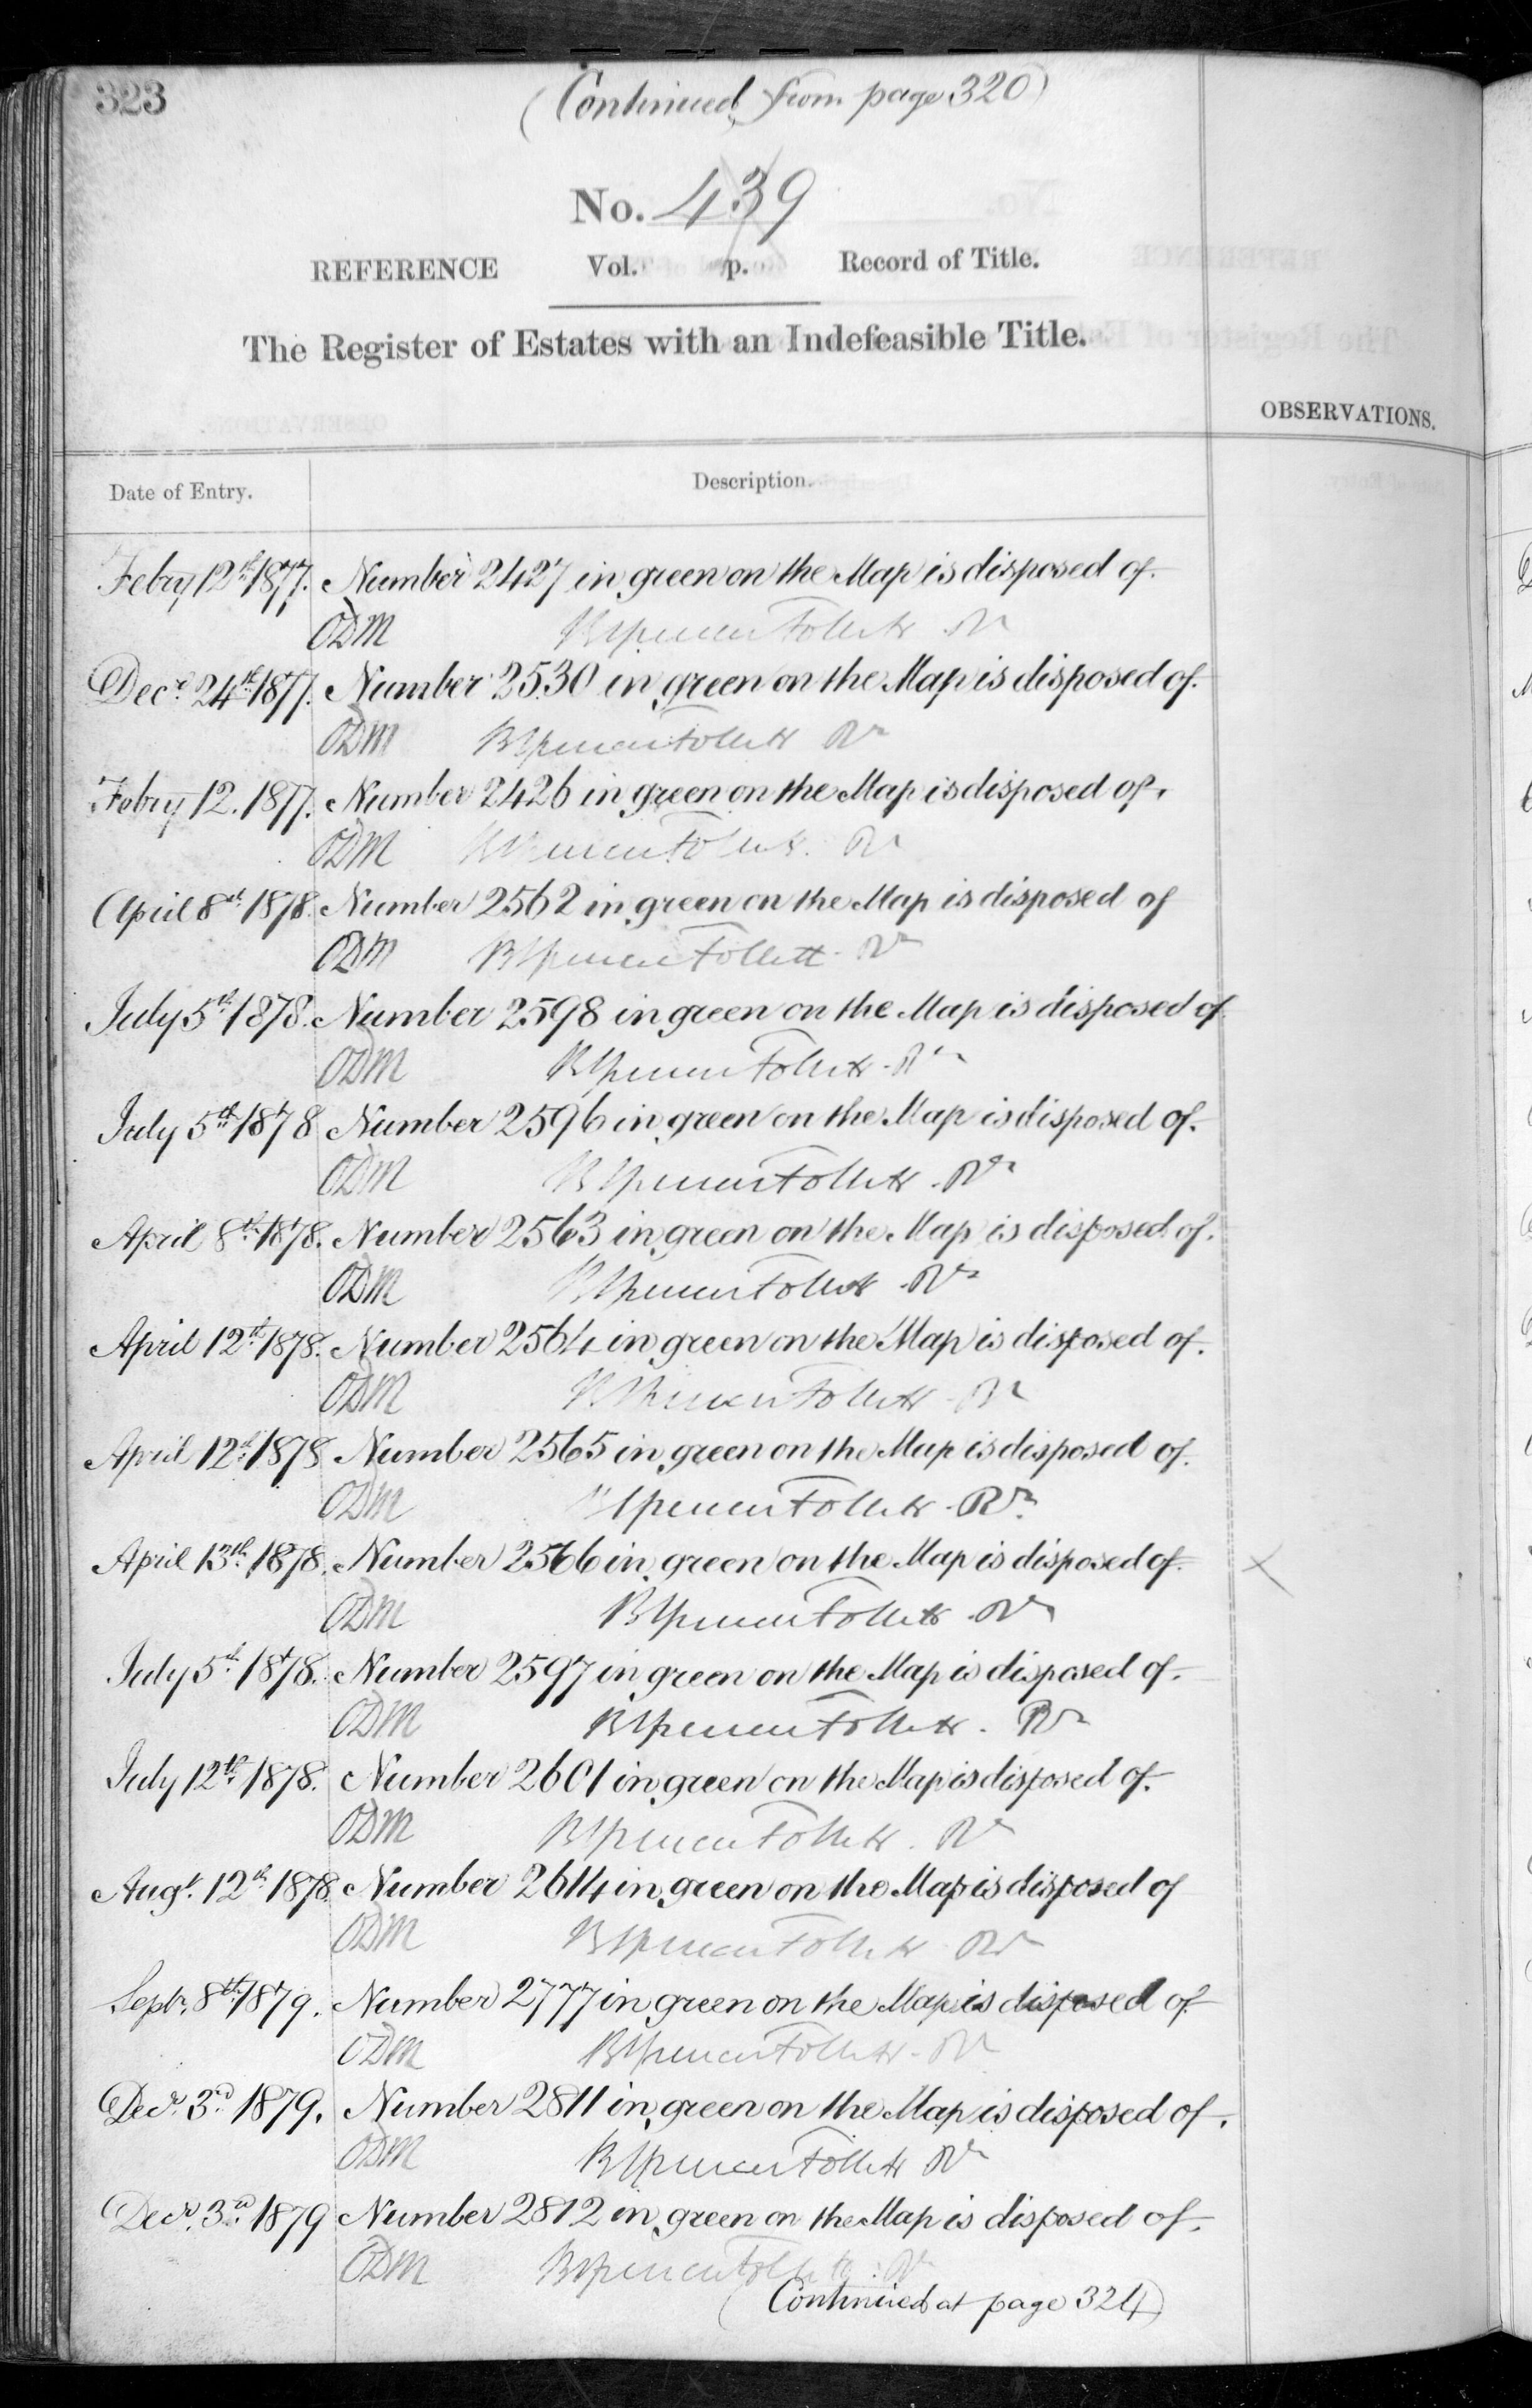 323
(Continued from page 320)
No. 439
REFERENCE Vol. p. Record of Title.
The Register of Estates with an Indefeasible Title.
OBSERVATIONS.
Date of Entry. Description.
Febry 12th 1877. Number 2427 in green on the Map is disposed of.
ODM BSpencer Follett Rr
Decr 24th 1877. Number 2530 in green on the Map is disposed of.
ODM BSpencer Follett Rr
Febry 12. 1877. Number 2426 in green on the Map is disposed of.
ODM BSpencer Follett. Rr
April 8th 1878. Number 2562 in green on the Map is disposed of
ODM BSpencer Follett. Rr
July 5th 1878. Number 2598 in green on the Map is disposed of
ODM BSpencer Follett. Rr
July 5th 1878 Number 2596 in green on the Map is disposed of.
ODM BSpencer Follett. Rr
April 8th 1878. Number 2563 in green on the Map is disposed of.
ODM BSpencer Follett. Rr
April 12th 1878. Number 2564 in green on the Map is disposed of.
ODM BSpencer Follett. Rr
April 12th 1878 Number 2565 in green on the Map is disposed of.
ODM BSpencer Follett. Rr
April 13th 1878. Number 2566 in green on the Map is disposed of. X
ODM BSpencer Follett. Rr
July 5th 1878. Number 2597 in green on the Map is disposed of.
ODM BSpencer Follett. Rr
July 12th 1878. Number 2601 in green on the Map is disposed of.
ODM BSpencer Follett. Rr
Augt. 12th 1878 Number 2614 in green on the Map is disposed of
ODM BSpencer Follett Rr
Septr. 8th 1879. Number 2777 in green on the Map is disposed of
ODM BSpencer Follett. Rr
Decr. 3rd 1879. Number 2811 in green on the Map is disposed of.
ODM BSpencer Follett Rr
Decr. 3rd 1879 Number 2812 in green on the Map is disposed of.
ODM BSpencer Follett. Rr
(Continued at page 324)